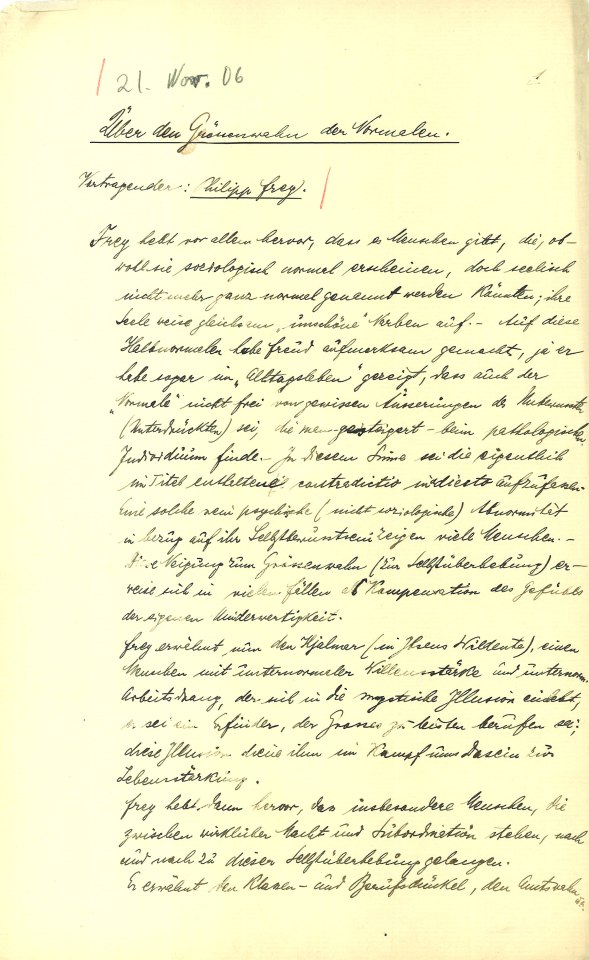 21. Nov. 06
1.
Über den Grössenwahn der Normalen.
Vortragender: Philipp Frey.
Frey hebt vor allem hervor, dass es Menschen gibt, die, ob-
wohl sie sociologisch normal erscheinen, doch seelisch
nicht mehr ganz normal genannt werden könnten; ihre
Seele weise gleichsam „unschöne" Narben auf. – Auf diese
Halbnormalen habe Freud aufmerksam gemacht, ja er
habe sogar im „Alltagsleben" gezeigt, dass auch der
„Normale" nicht frei von gewissen Äusserungen des Unbewussten
(Unterdrückten) sei, die man gesteigert – beim pathologischen
Individuum finde. – In diesem Sinne sei die eigentlich
im Titel enthaltene contradictio in adiecto aufzufassen.
Eine solche rein psychische (nicht soziologische) Abnormität
in bezug auf ihr Selbstbewusstsein zeigen viele Menschen. –
Die Neigung zum Grössenwahn (zur Selbstüberhebung) er-
weise sich in vielen Fällen als Kompensation des Gefühls
der eigenen Minderwertigkeit.
Frey erwähnt nun den Hjalmar (in Ibsens Wildente), einen
Menschen mit unternormaler Willensstärke und unternorm.
Arbeitsdrang, der sich in die mystische Illusion einlebt,
er sei ein Erfinder, der Grosses zu leisten berufen sei;
diese Illusion diene ihm im Kampf ums Dasein zur
Lebensstärkung.
Frey hebt dann hervor, das insbesondere Menschen, die
zwischen wirklicher Macht und Subordination stehen, nach
und nach zu dieser Selbstüberhebung gelangen.
Er erwähnt den Klassen- und Berufsdünkel, den Amtswahn